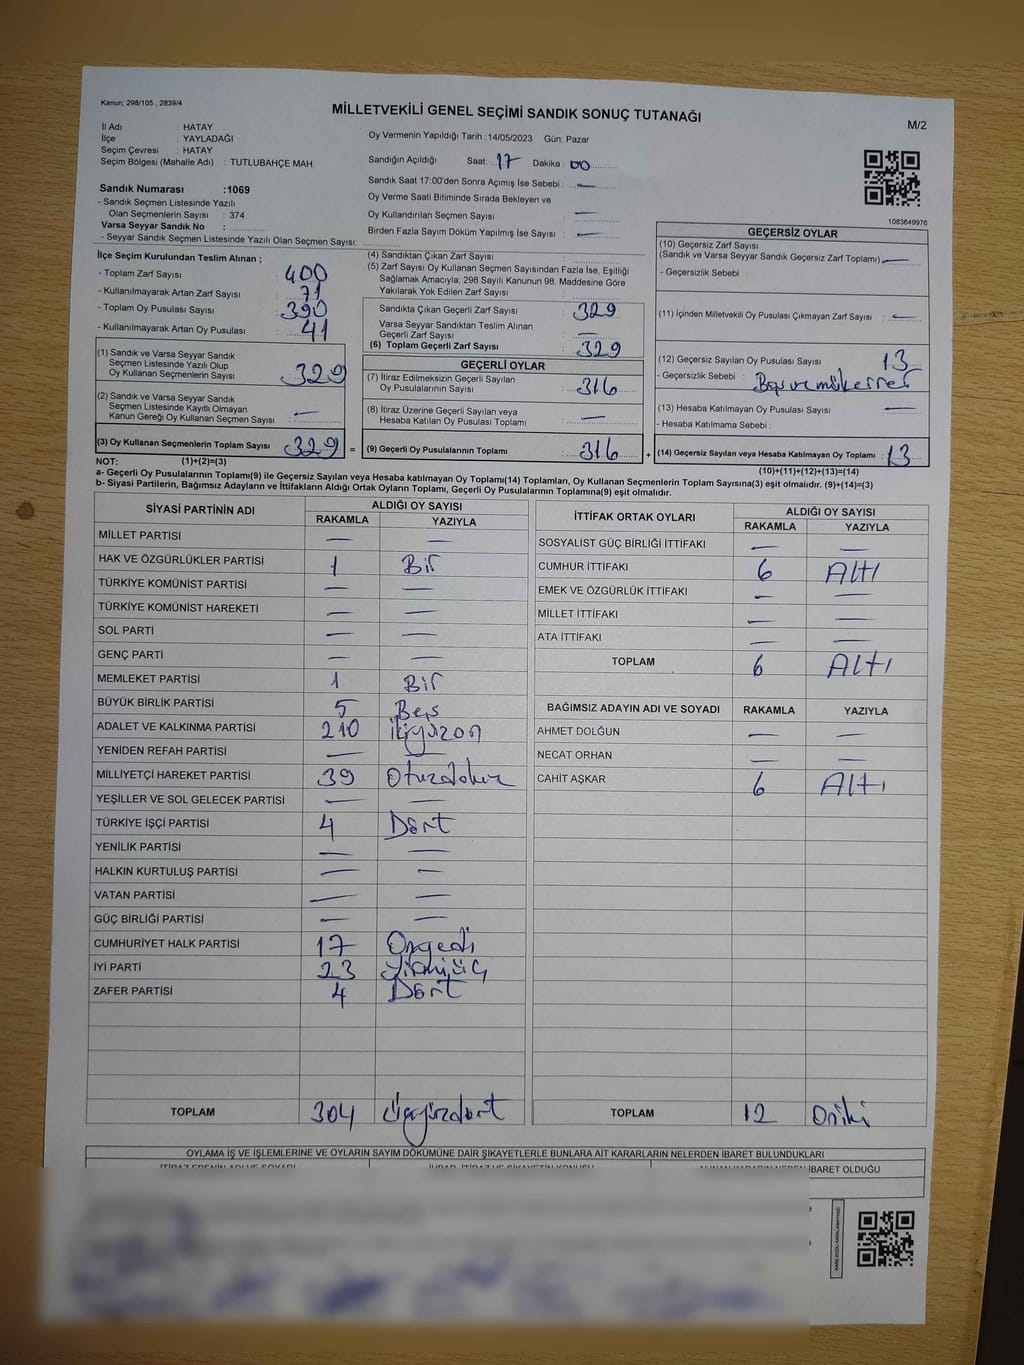 Kanun; 298/105 , 2839/4
MİLLETVEKİLİ GENEL SEÇİMİ SANDIK SONUÇ TUTANAĞI
M/2
İl Adı : HATAY
İlçe : YAYLADAĞI
Seçim Çevresi : HATAY
Seçim Bölgesi (Mahalle Adı) : TUTLUBAHÇE MAH.
Oy Vermenin Yapıldığı Tarih : 14/05/2023 Gün: Pazar
Sandığın Açıldığı Saat: 17 Dakika : 00
Sandık Saat 17:00'den Sonra Açımış İse Sebebi : —
Oy Verme Saati Bitiminde Sırada Bekleyen ve
Oy Kullandırılan Seçmen Sayısı : —
Birden Fazla Sayım Döküm Yapılmış İse Sayısı : —
1083649976
Sandık Numarası :1069
- Sandık Seçmen Listesinde Yazılı
Olan Seçmenlerin Sayısı : 374
Varsa Seyyar Sandık No :
- Seyyar Sandık Seçmen Listesinde Yazılı Olan Seçmen Sayısı:
İlçe Seçim Kurulundan Teslim Alınan ;
- Toplam Zarf Sayısı : 400
- Kullanılmayarak Artan Zarf Sayısı : 71
- Toplam Oy Pusulası Sayısı : 390
- Kullanılmayarak Artan Oy Pusulası : 41
(1) Sandık ve Varsa Seyyar Sandık
Seçmen Listesinde Yazılı Olup
Oy Kullanan Seçmenlerin Sayısı : 329
(2) Sandık ve Varsa Seyyar Sandık
Seçmen Listesinde Kayıtlı Olmayan
Kanun Gereği Oy Kullanan Seçmen Sayısı : —
(3) Oy Kullanan Seçmenlerin Toplam Sayısı : 329 =
(4) Sandıktan Çıkan Zarf Sayısı :
(5) Zarf Sayısı Oy Kullanan Seçmen Sayısından Fazla İse, Eşitliği
Sağlamak Amacıyla; 298 Sayılı Kanunun 98. Maddesine Göre
Yakılarak Yok Edilen Zarf Sayısı :
Sandıkta Çıkan Geçerli Zarf Sayısı : 329
Varsa Seyyar Sandıktan Teslim Alınan
Geçerli Zarf Sayısı : —
(6) Toplam Geçerli Zarf Sayısı : 329
GEÇERLİ OYLAR
(7) İtiraz Edilmeksizin Geçerli Sayılan
Oy Pusulalarının Sayısı : 316
(8) İtiraz Üzerine Geçerli Sayılan veya
Hesaba Katılan Oy Pusulaları Toplamı : —
(9) Geçerli Oy Pusulalarının Toplamı : 316 +
GEÇERSİZ OYLAR
(10) Geçersiz Zarf Sayısı
(Sandık ve Varsa Seyyar Sandık Geçersiz Zarf Toplamı) —
- Geçersizlik Sebebi :
(11) İçinden Milletvekili Oy Pusulası Çıkmayan Zarf Sayısı : —
(12) Geçersiz Sayılan Oy Pusulası Sayısı : 13
- Geçersizlik Sebebi : Boş ve mükerrer
(13) Hesaba Katılmayan Oy Pusulası Sayısı : —
- Hesaba Katılmama Sebebi :
(14) Geçersiz Sayılan veya Hesaba Katılmayan Oy Toplamı : 13
NOT: (1)+(2)=(3) (10)+(11)+(12)+(13)=(14)
a- Geçerli Oy Pusulalarının Toplamı(9) ile Geçersiz Sayılan veya Hesaba katılmayan Oy Toplamı(14) Toplamları, Oy Kullanan Seçmenlerin Toplam Sayısına(3) eşit olmalıdır. (9)+(14)=(3)
b- Siyasi Partilerin, Bağımsız Adayların ve İttifakların Aldığı Ortak Oyların Toplamı, Geçerli Oy Pusulalarının Toplamına(9) eşit olmalıdır.
SİYASİ PARTİNİN ADI ALDIĞI OY SAYISI
RAKAMLA YAZIYLA
MİLLET PARTİSİ — —
HAK VE ÖZGÜRLÜKLER PARTİSİ 1 Bir
TÜRKİYE KOMÜNİST PARTİSİ — —
TÜRKİYE KOMÜNİST HAREKETİ — —
SOL PARTİ — —
GENÇ PARTİ — —
MEMLEKET PARTİSİ 1 Bir
BÜYÜK BİRLİK PARTİSİ 5 Beş
ADALET VE KALKINMA PARTİSİ 210 ikiyüzon
YENİDEN REFAH PARTİSİ — —
MİLLİYETÇİ HAREKET PARTİSİ 39 Otuzdokuz
YEŞİLLER VE SOL GELECEK PARTİSİ — —
TÜRKİYE İŞÇİ PARTİSİ 4 Dört
YENİLİK PARTİSİ — —
HALKIN KURTULUŞ PARTİSİ — —
VATAN PARTİSİ — —
GÜÇ BİRLİĞİ PARTİSİ — —
CUMHURİYET HALK PARTİSİ 17 Onyedi
İYİ PARTİ 23 Yirmiüç
ZAFER PARTİSİ 4 Dört
TOPLAM 304 Üçyüzdört
İTTİFAK ORTAK OYLARI ALDIĞI OY SAYISI
RAKAMLA YAZIYLA
SOSYALİST GÜÇ BİRLİĞİ İTTİFAKI — —
CUMHUR İTTİFAKI 6 Altı
EMEK VE ÖZGÜRLÜK İTTİFAKI — —
MİLLET İTTİFAKI — —
ATA İTTİFAKI — —
TOPLAM 6 Altı
BAĞIMSIZ ADAYIN ADI VE SOYADI RAKAMLA YAZIYLA
AHMET DOLĞUN — —
NECAT ORHAN — —
CAHİT AŞKAR 6 Altı
TOPLAM 12 Oniki
OYLAMA İŞ VE İŞLEMLERİNE VE OYLARIN SAYIM DÖKÜMÜNE DAİR ŞİKAYETLERLE BUNLARA AİT KARARLARIN NELERDEN İBARET BULUNDUKLARI
İBARET OLDUĞU